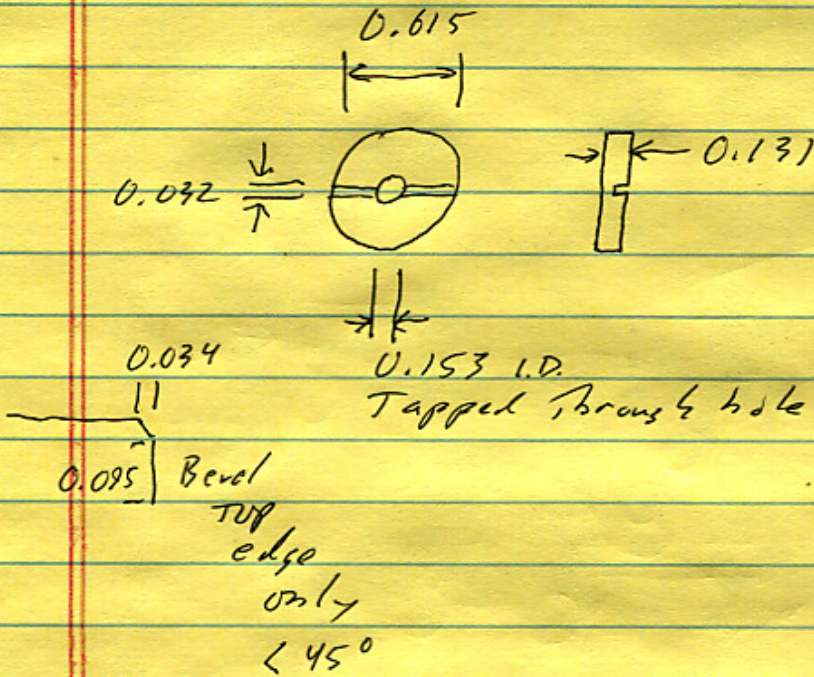 0.615
0.032
0.131
0.153 I.D.
Tapped Through hole
0.034
0.095
Bevel
TOP
edge
only
< 45°